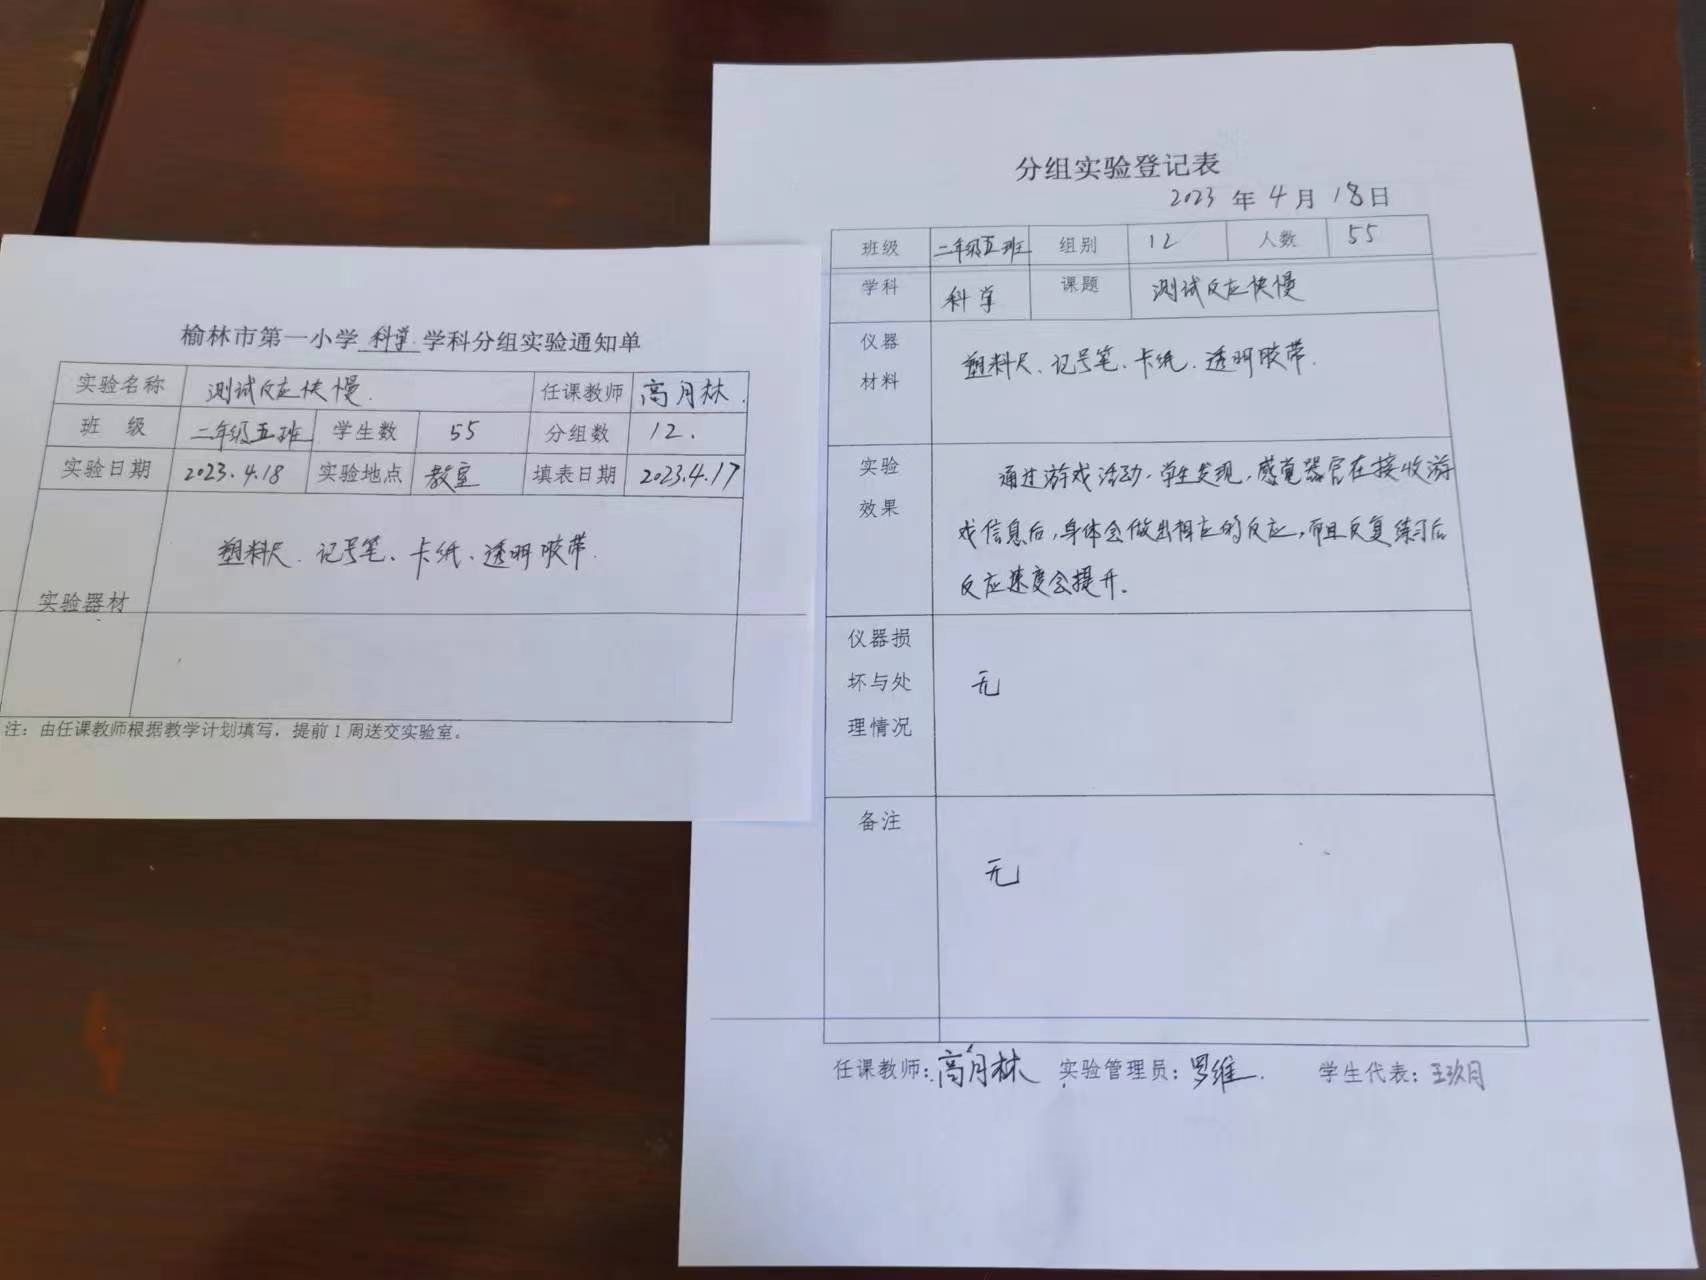 榆林市第一小学科学学科分组实验通知单
实验名称 测试反应快慢. 任课教师 高月林.
班 级 二年级五班 学生数 55 分组数 12.
实验日期 2023.4.18 实验地点 教室 填表日期 2023.4.17
实验器材 塑料尺、记号笔、卡纸、透明胶带.
注：由任课教师根据教学计划填写，提前1周送交实验室。
分组实验登记表
2023 年 4 月 18 日
班级 二年级五班 组别 12 人数 55
学科 科学 课题 测试反应快慢
仪器
材料
塑料尺、记号笔、卡纸、透明胶带.
实验
效果
通过游戏活动，学生发现，感觉器官在接收游
戏信息后，身体会做出相应的反应，而且反复练习后
反应速度会提升。
仪器损
坏与处
理情况
无
备注
无
任课教师：高月林 实验管理员：罗维. 学生代表：王玖月